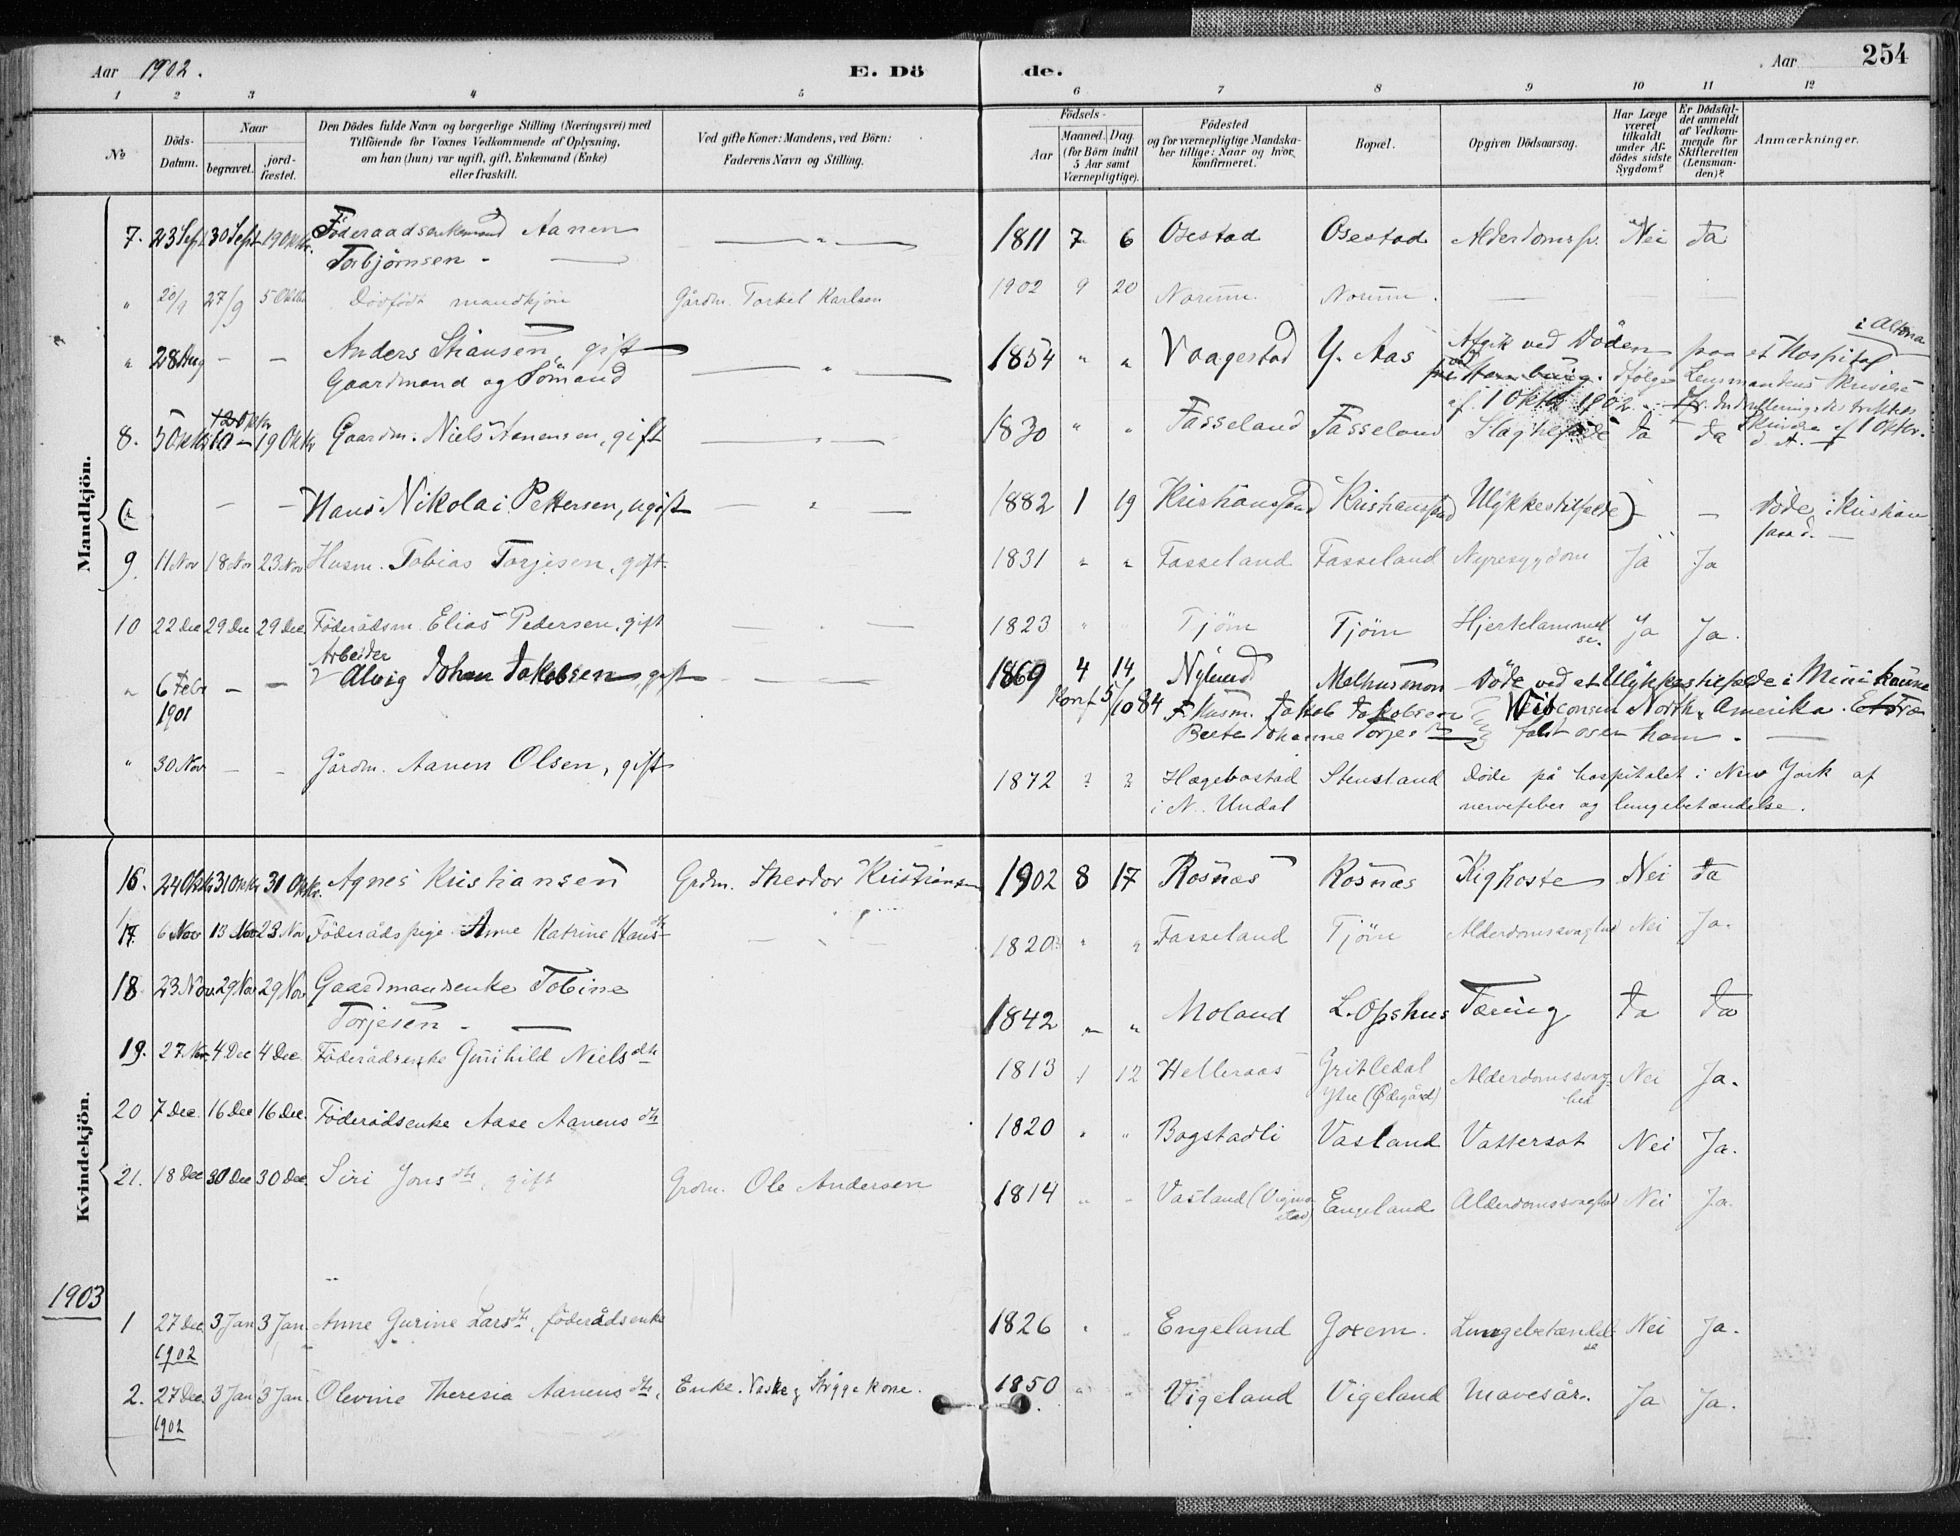 Aar 1902. E. Dö de. Aar 254
1 2 3 4 5 6 7 8 9 10 11 12
No
Döds-Datum.
Naar
begravet.
jord-fæstet.
Den Dödes fulde Navn og borgerlige Stilling (Næringsvei) med
Tilföiende for Voxnes Vedkommende af Oplysning,
om han (hun) var ugift, gift, Enkemand (Enke)
eller fraskilt.
Ved gifte Koner: Mandens, ved Börn:
Faderens Navn og Stilling.
Födsels-
Aar
Maaned. Dag.
(for Börn indtil
5 Aar samt
Værnepligtige).
Födested
og for værnepligtige Mandska-
ber tillige: Naar og hvor
konfirmeret.
Bopæl.
Opgiven Dödsaarsag.
Har Læge
været
tilkaldt
under Af-
dödes sidste
Sygdom?
Er Dödsfal-
det anmeldt
af Vedkom-
mende for
Skifteretten
(Lensman-
den)?
Anmærkninger.
Mandkjön.
7. 23 Sept 30 Sept 19 Oktbr. Föderaadsenkemand Aanen — " — 1811 7 6 Osestad Osestad Alderdomssv. Nei Ja
Torbjörnsen - —
" 20/9 27/9 5 Oktbr Dödfödt mandkjön Gårdm. Torkel Karlsen 1902 9 20 Noreim. Noreim. — — —
i Altona
" 28 Aug — — Anders Stiansen, gift — " — 1854 " " Vaagestad Y. Aas Afgik ved Döden paa et Hospital
Gaardmand og Sömand
ved Hamburg. Ifölge Lensmandens Skrivelse
af 1 Oktbr 1902.
Skrivelse af 1 Oktbr.
d. A. —
8. 5 Oktbr 12 Oktbr 19 Oktbr Gaardm. Niels Aanensen, gift — " — 1830 " " Fasseland Fasseland Slagtilfælde Ja Ja
( " — — Hans Nikolai Pettersen, ugift — " — 1882 1 19 Kristianssand Kristianssand Ulykkestilfælde) - — Döde i Kristian
sand. —
9. 11 Nov 18 Nov 23 Nov Husm. Tobias Torjesen, gift. — " — 1831 " " Fasseland Fasseland Nyresygdom Ja Ja
10 22 Dec 29 Dec 29 Dec. Föderådsm. Elias Pedersen, gift — " — 1823 " " Tjöm Tjöm Hjertelammel
se. Ja Ja.
Arbeider
" 6 Febr — — Alvig Johan Jakobsen, gift — " — 1869 4 14 Nylund Melhusmon Döde ved et Ulykkestilfælde i Mini
1901 Konf 5/10 84 F. Husm. Jakob Jakobsen Wisconsin North Amerika. Et Træ
Beete Johanne Torjes faldt over ham. —
" 30 Nov — — Gårdm. Aanen Olsen, gift 1872 ? ? Hægebostad Stensland Döde på hospitalet i New York af
i N. Undal nervefeber og lungebetændelse.
Kvindekjön.
16. 24 Oktbr 31 Oktbr 31 Oktbr. Agnes Kristiansen Grdm. Theodor Kristiansen 1902 8 17 Rosnæs Rosnæs Kighoste Nei Ja
17. 6 Nov 13 Nov 23 Nov Föderådspige Anne Katrine Hansdtr — " — 1820 " " Fasseland Tjöm Alderdomssvaghed Nei Ja.
18 23 Nov. 29 Nov 29 Nov Gaardmandsenke Tobine
Torjesen - — 1842 " " Moland L. Opshus Tæring Ja Ja
19. 27 Nov 4 Dec 4 Dec Föderådsenke Gunhild Nielsdtr 1813 1 12 Helleraas Gritledal Alderdomssvag- Nei Ja.
Ytre (Ødegård) hed
20 7 Dec. 16 Dec 16 Dec. Föderådsenke Aase Aanensdtr 1820 " " Bogstadli Vasland Vattersot Nei Ja.
21. 18 Dec 30 Dec 30 Dec. Siri Jonsdtr, gift Grdm. Ole Andersen 1814 " " Vasland (Vigmo
stad) Engeland Alderdomssvaghed Nei Ja.
1903
1 27 Dec. 3 Jan 3 Jan. Anne Gurine Larsdtr, föderådsenke 1826 " " Engeland Goxem. Lungebetændel
se Nei Ja.
1902
2. 27 Dec. 3 Jan 3 Jan. Olevine Theresia Aanensdtr, Enke. Vaske og Strygekone. 1850 " " Vigeland Vigeland Mavesår. Ja Ja.
1902